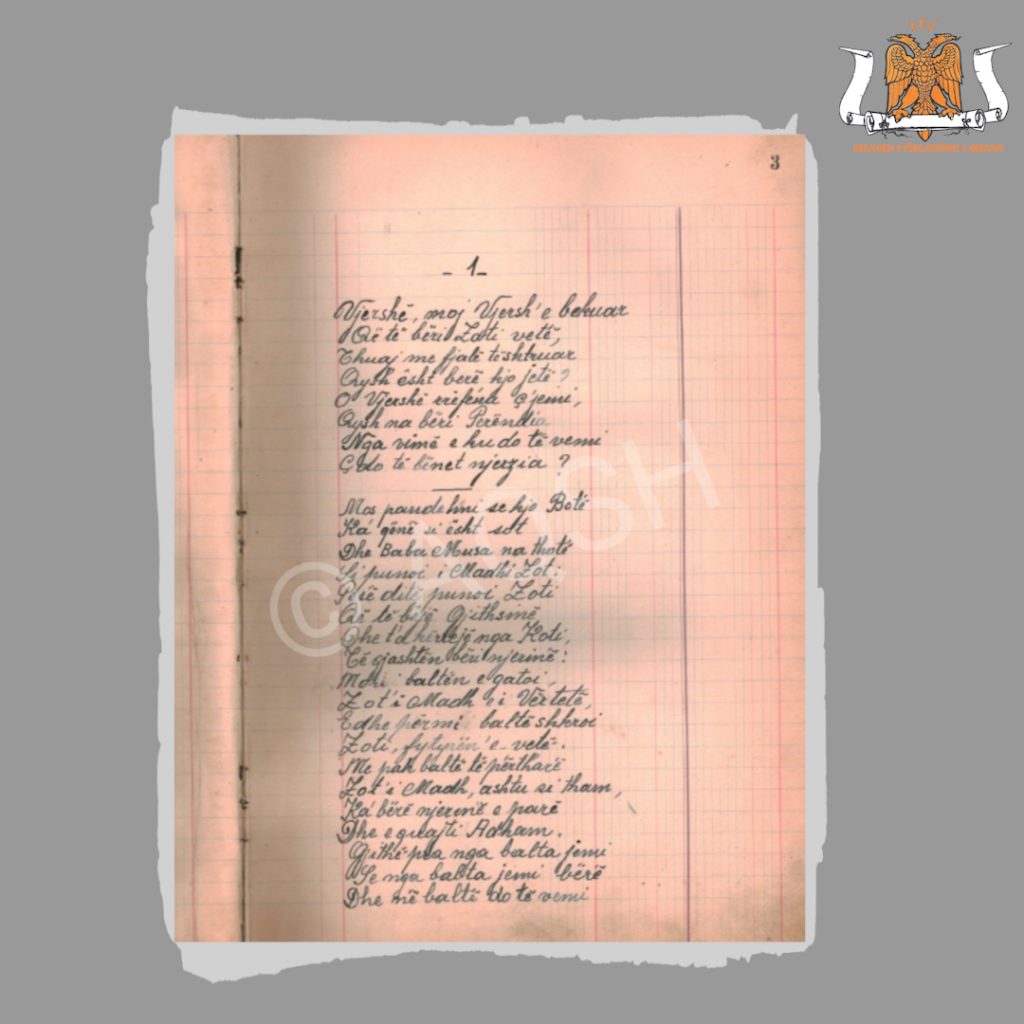 DREJTORIA E PËRGJITHSHME E ARKIVAVE
3
- 1 -
Vjershë, moj Vjersh' e bekuar
Që të bëri Zoti vetë,
Thuaj me fjalë të shtruar
Qysh ësht bërë kjo jetë?
O Vjershë rrëfena ç'jemi,
Qysh na bëri Perëndia
Nga vimë e ku do të vemi
Ç'do të bënet njerzia?
Mos pandehni se kjo Botë
Ká qënë si ësht sot
Dhe Baba Musa na thotë
Si punoi i Madhi Zot:
Pesë ditë punoi Zoti
Që të bëjë Gjithsinë
Dhe t'a nga Koti,
Të gjashtën bëri njerinë:
Mori baltën e gatoi,
Zot' i Madh e i Vërtetë,
Edhe përmi baltë shkroi
Zoti, fytyrën' e vetë.
Me pak baltë të përtharë
Zot' i Madh, ashtu si tham,
Ká bërë njerinë e parë
Dhe e quajti Adham.
Gjithë pra nga balta jemi
Se nga balta jemi bërë
Dhe në baltë do të vemi
© AQSH